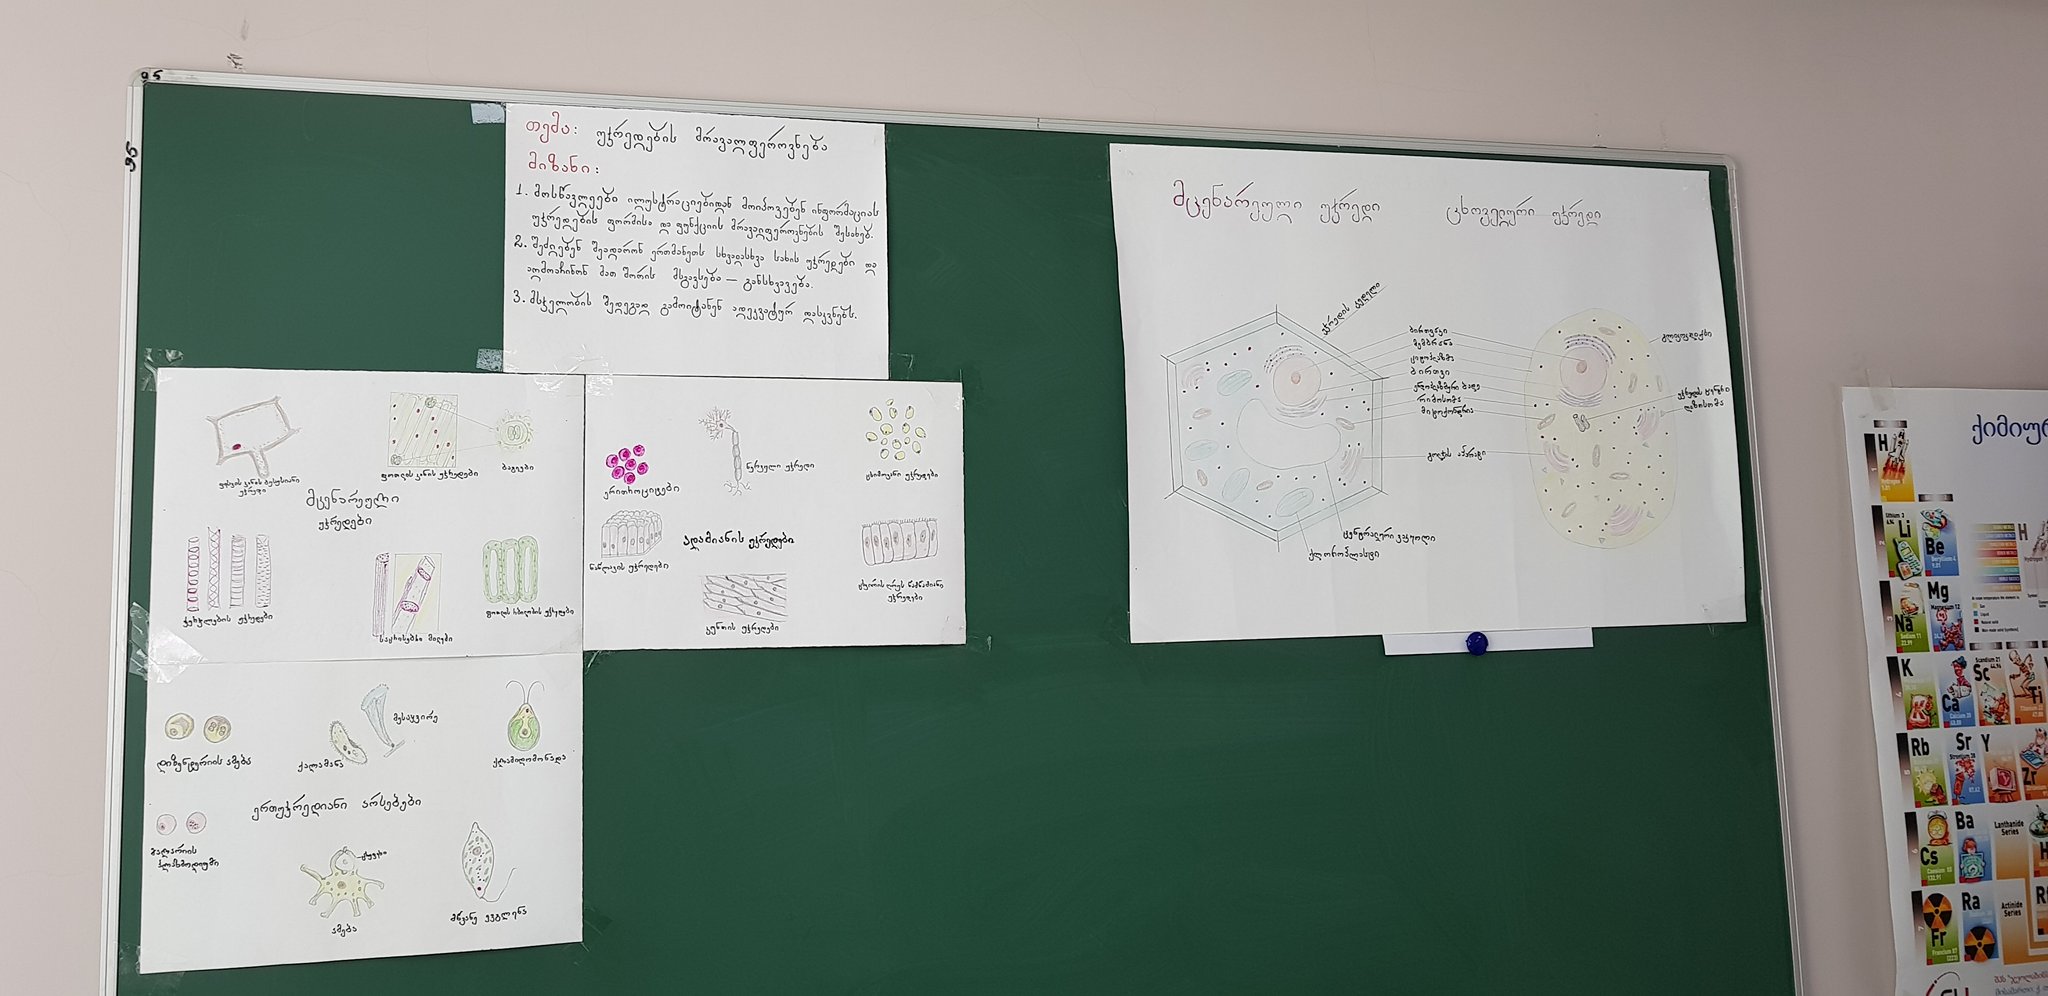 თემა: უჯრედების მრავალფეროვნება
მიზანი:
1. მოსწავლეები ილუსტრაციებიდან მოიპოვებენ ინფორმაციას
უჯრედების ფორმისა და ფუნქციის მრავალფეროვნების შესახებ.
2. შეძლებენ შეადარონ ერთმანეთს სხვადასხვა სახის უჯრედები და
აღმოაჩინონ მათ შორის მსგავსება — განსხვავება.
3. მსჯელობის შედეგად გამოიტანენ ადეკვატურ დასკვნებს.
ფოთლის კანის უჯრედები
ბაგეები
მცენარეული
უჯრედები
ჭურჭლების უჯრედები
საცრისებრი მილები
ფოთლის რბილობის უჯრედები
ერითროციტები
ნერვული უჯრედი
ცხიმოვანი უჯრედები
ნაწლავის უჯრედები
ადამიანის უჯრედები
კუნთის უჯრედები
უჯრედები
დიზენტერიის ამება
ქალამანა
მესაყვირე
ქლამიდომონადა
ერთუჯრედიანი არსებები
მალარიის
პლაზმოდიუმი
ამება
მწვანე ევგლენა
მცენარეული უჯრედი
ცხოველური უჯრედი
უჯრედის კედელი
ბირთვაკი
მემბრანა
ციტოპლაზმა
ბირთვი
ენდოპლაზმური ბადე
რიბოსომა
მიტოქონდრია
გოლჯის აპარატი
ცენტრალური ვაკუოლი
ქლოროპლასტი
გლიკოკალიქსი
უჯრედის ცენტრი
ლიზოსომა
ქიმიურ
H
Li
Be
Na
Mg
K
Ca
Sc
Ti
Rb
Sr
Y
Zr
Cs
Ba
Lanthanide
Series
Fr
Ra
Actinide
Series